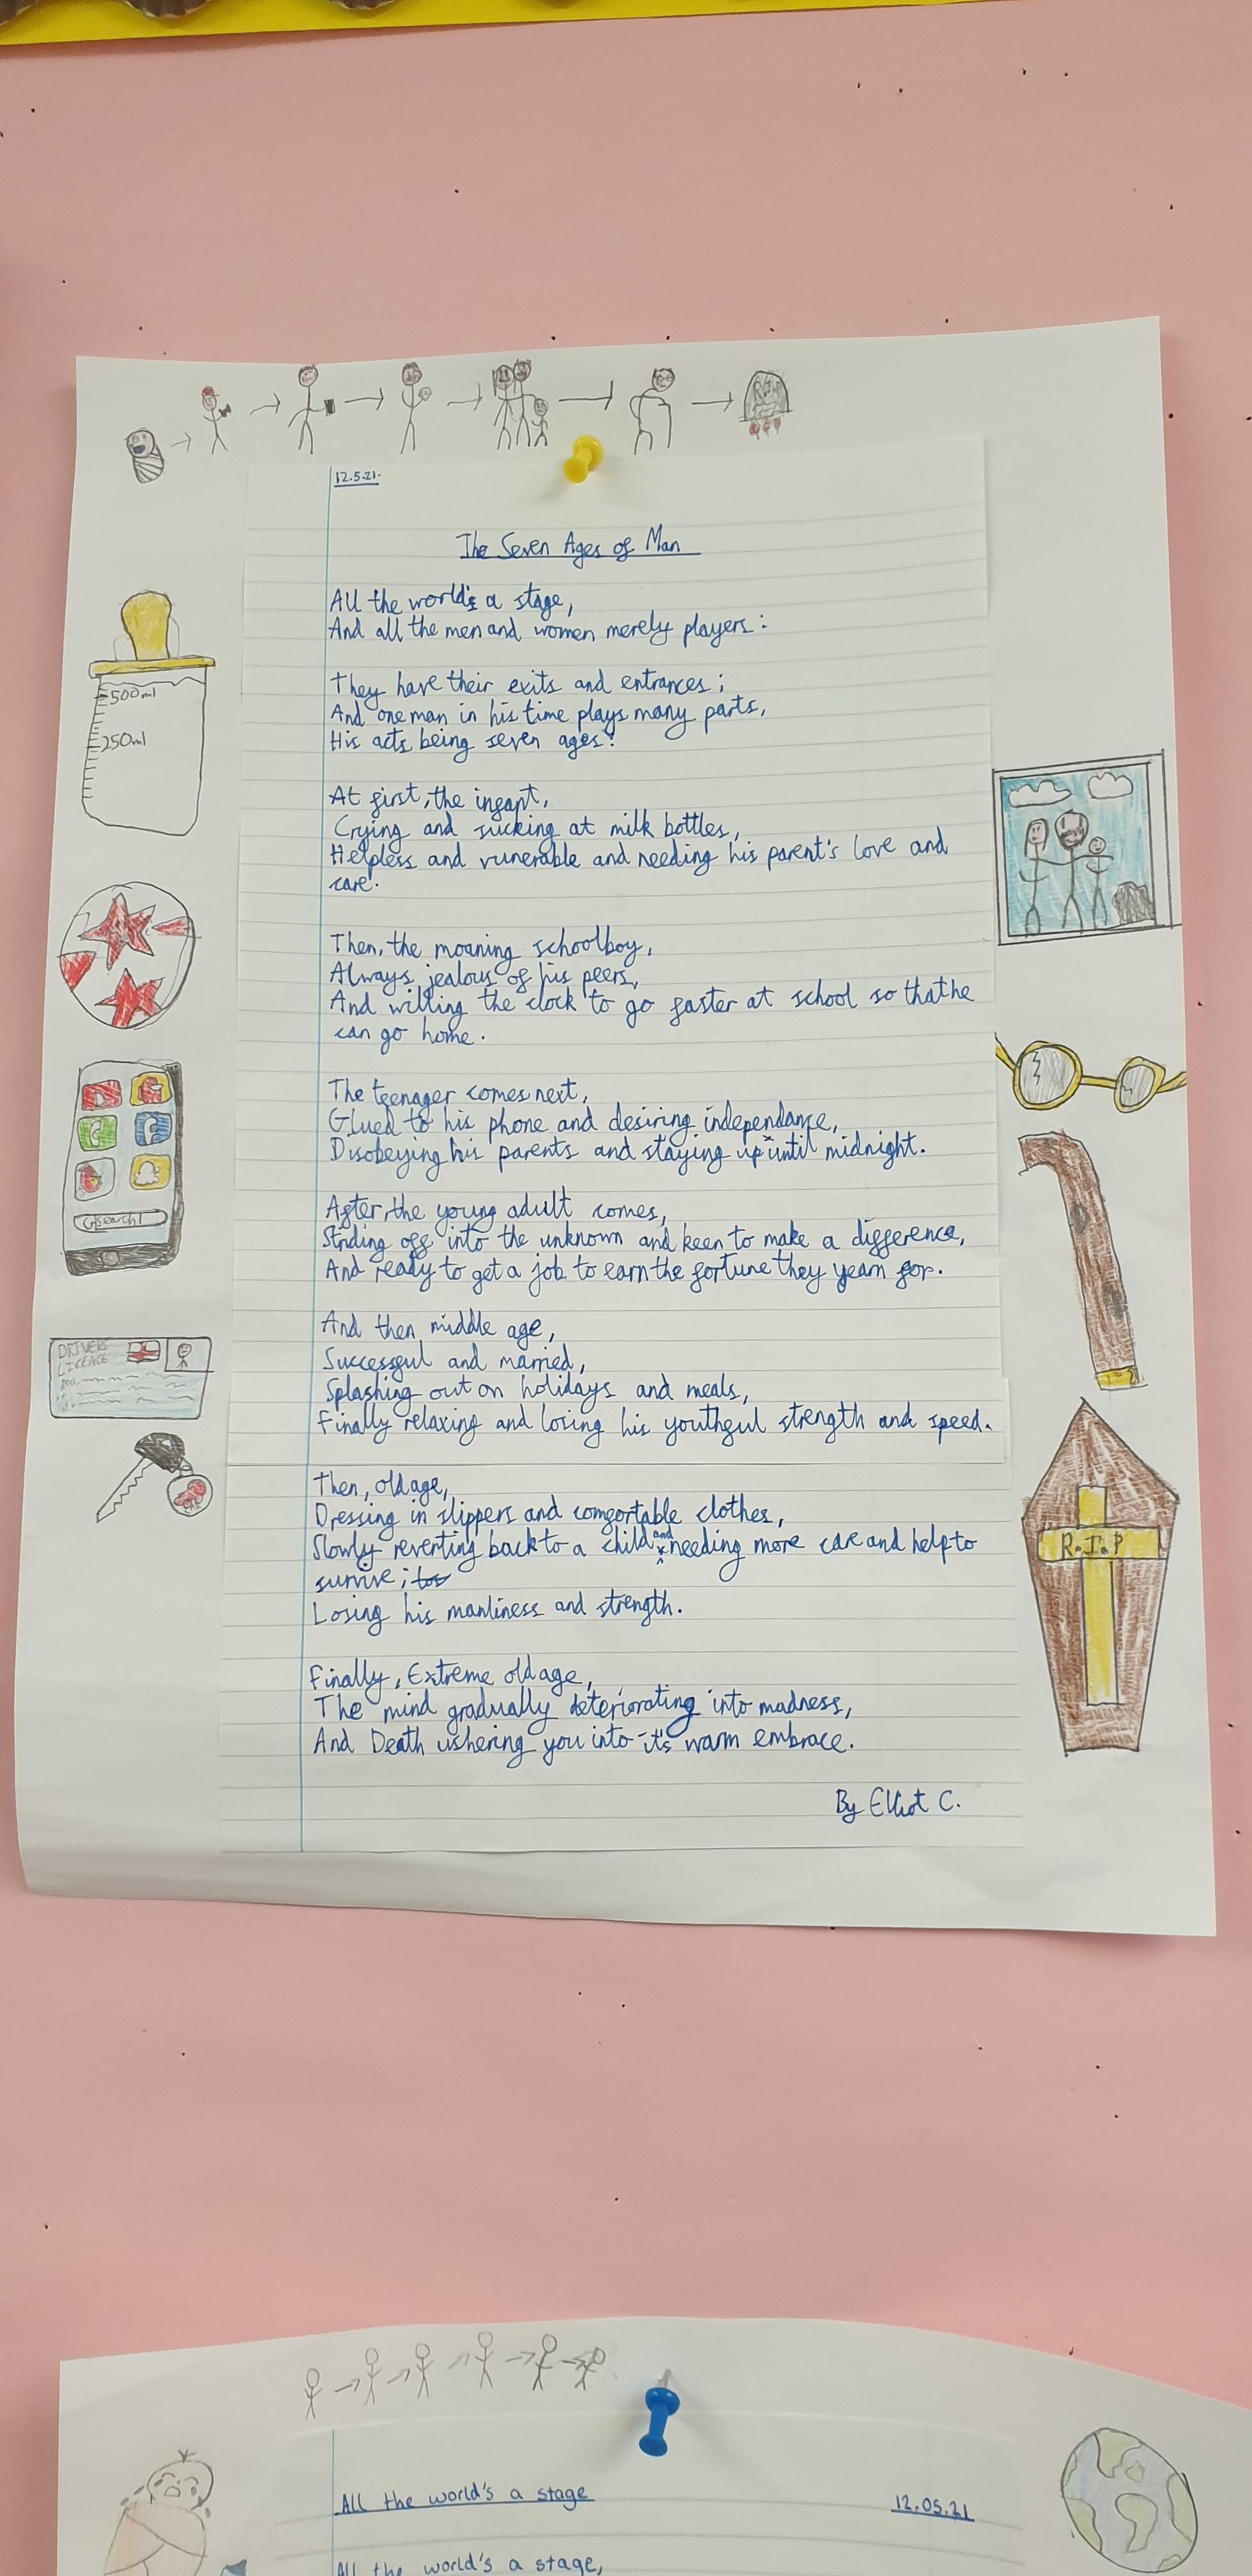 R.I.P
12.5.21.
The Seven Ages of Man
All the world's a stage,
And all the men and women merely players:
They have their exits and entrances;
And one man in his time plays many parts,
His acts being seven ages:
At first, the infant,
Crying and sucking at milk bottles,
Helpless and vunerable and needing his parent's love and
care.
Then, the moaning schoolboy,
Always jealous of his peers,
And willing the clock to go faster at school so that he
can go home.
The teenager comes next,
Glued to his phone and desiring independance,
Disobeying his parents and staying up until midnight.
After, the young adult comes,
Striding off into the unknown and keen to make a difference,
And ready to get a job to earn the fortune they yearn for.
And then middle age,
Successful and married,
Splashing out on holidays and meals,
Finally relaxing and losing his youthful strength and speed.
Then, old age,
Dressing in slippers and comfortable clothes,
Slowly reverting back to a child and needing more care and help to
survive;
Losing his manliness and strength.
Finally, Extreme old age,
The mind gradually deteriorating into madness,
And Death ushering you into it's warm embrace.
By Elliot C.
500ml
250ml
Search
DRIVERS
LICENCE
R.I.P
All the world's a stage
12.05.21
All the world's a stage,